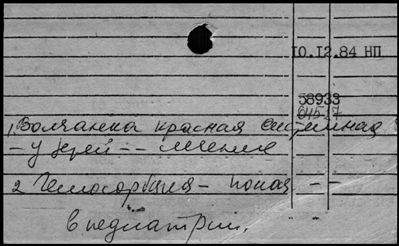 10.12.84 НП
58933
1. Волчанка красная системная
– у детей – – лечение
2. Гемосорбция – показ – –
в педиатрии.